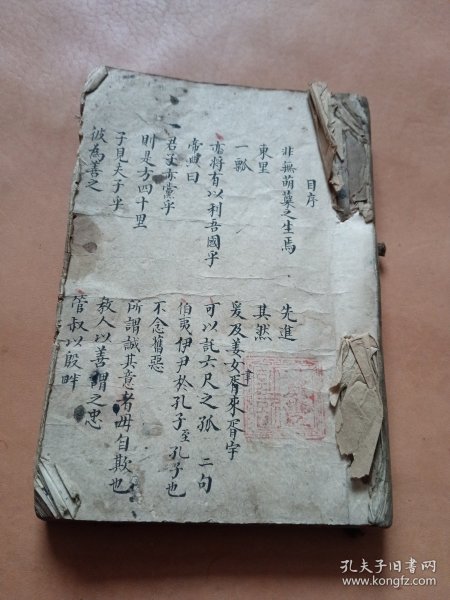 目序
非無萌蘗之生焉
東里
一瓢
亦將有以利吾國乎
帝典曰
君子亦黨乎
則是方四十里
子見夫子乎
彼為善之
先進
其然
爰及姜女聿來胥宇
可以託六尺之孤 二句
伯夷伊尹於孔子至孔子也
不念舊惡
所謂誠其意者毋自欺也
教人以善謂之忠
管叔以殷畔
孔夫子旧书网
www.kongfz.com